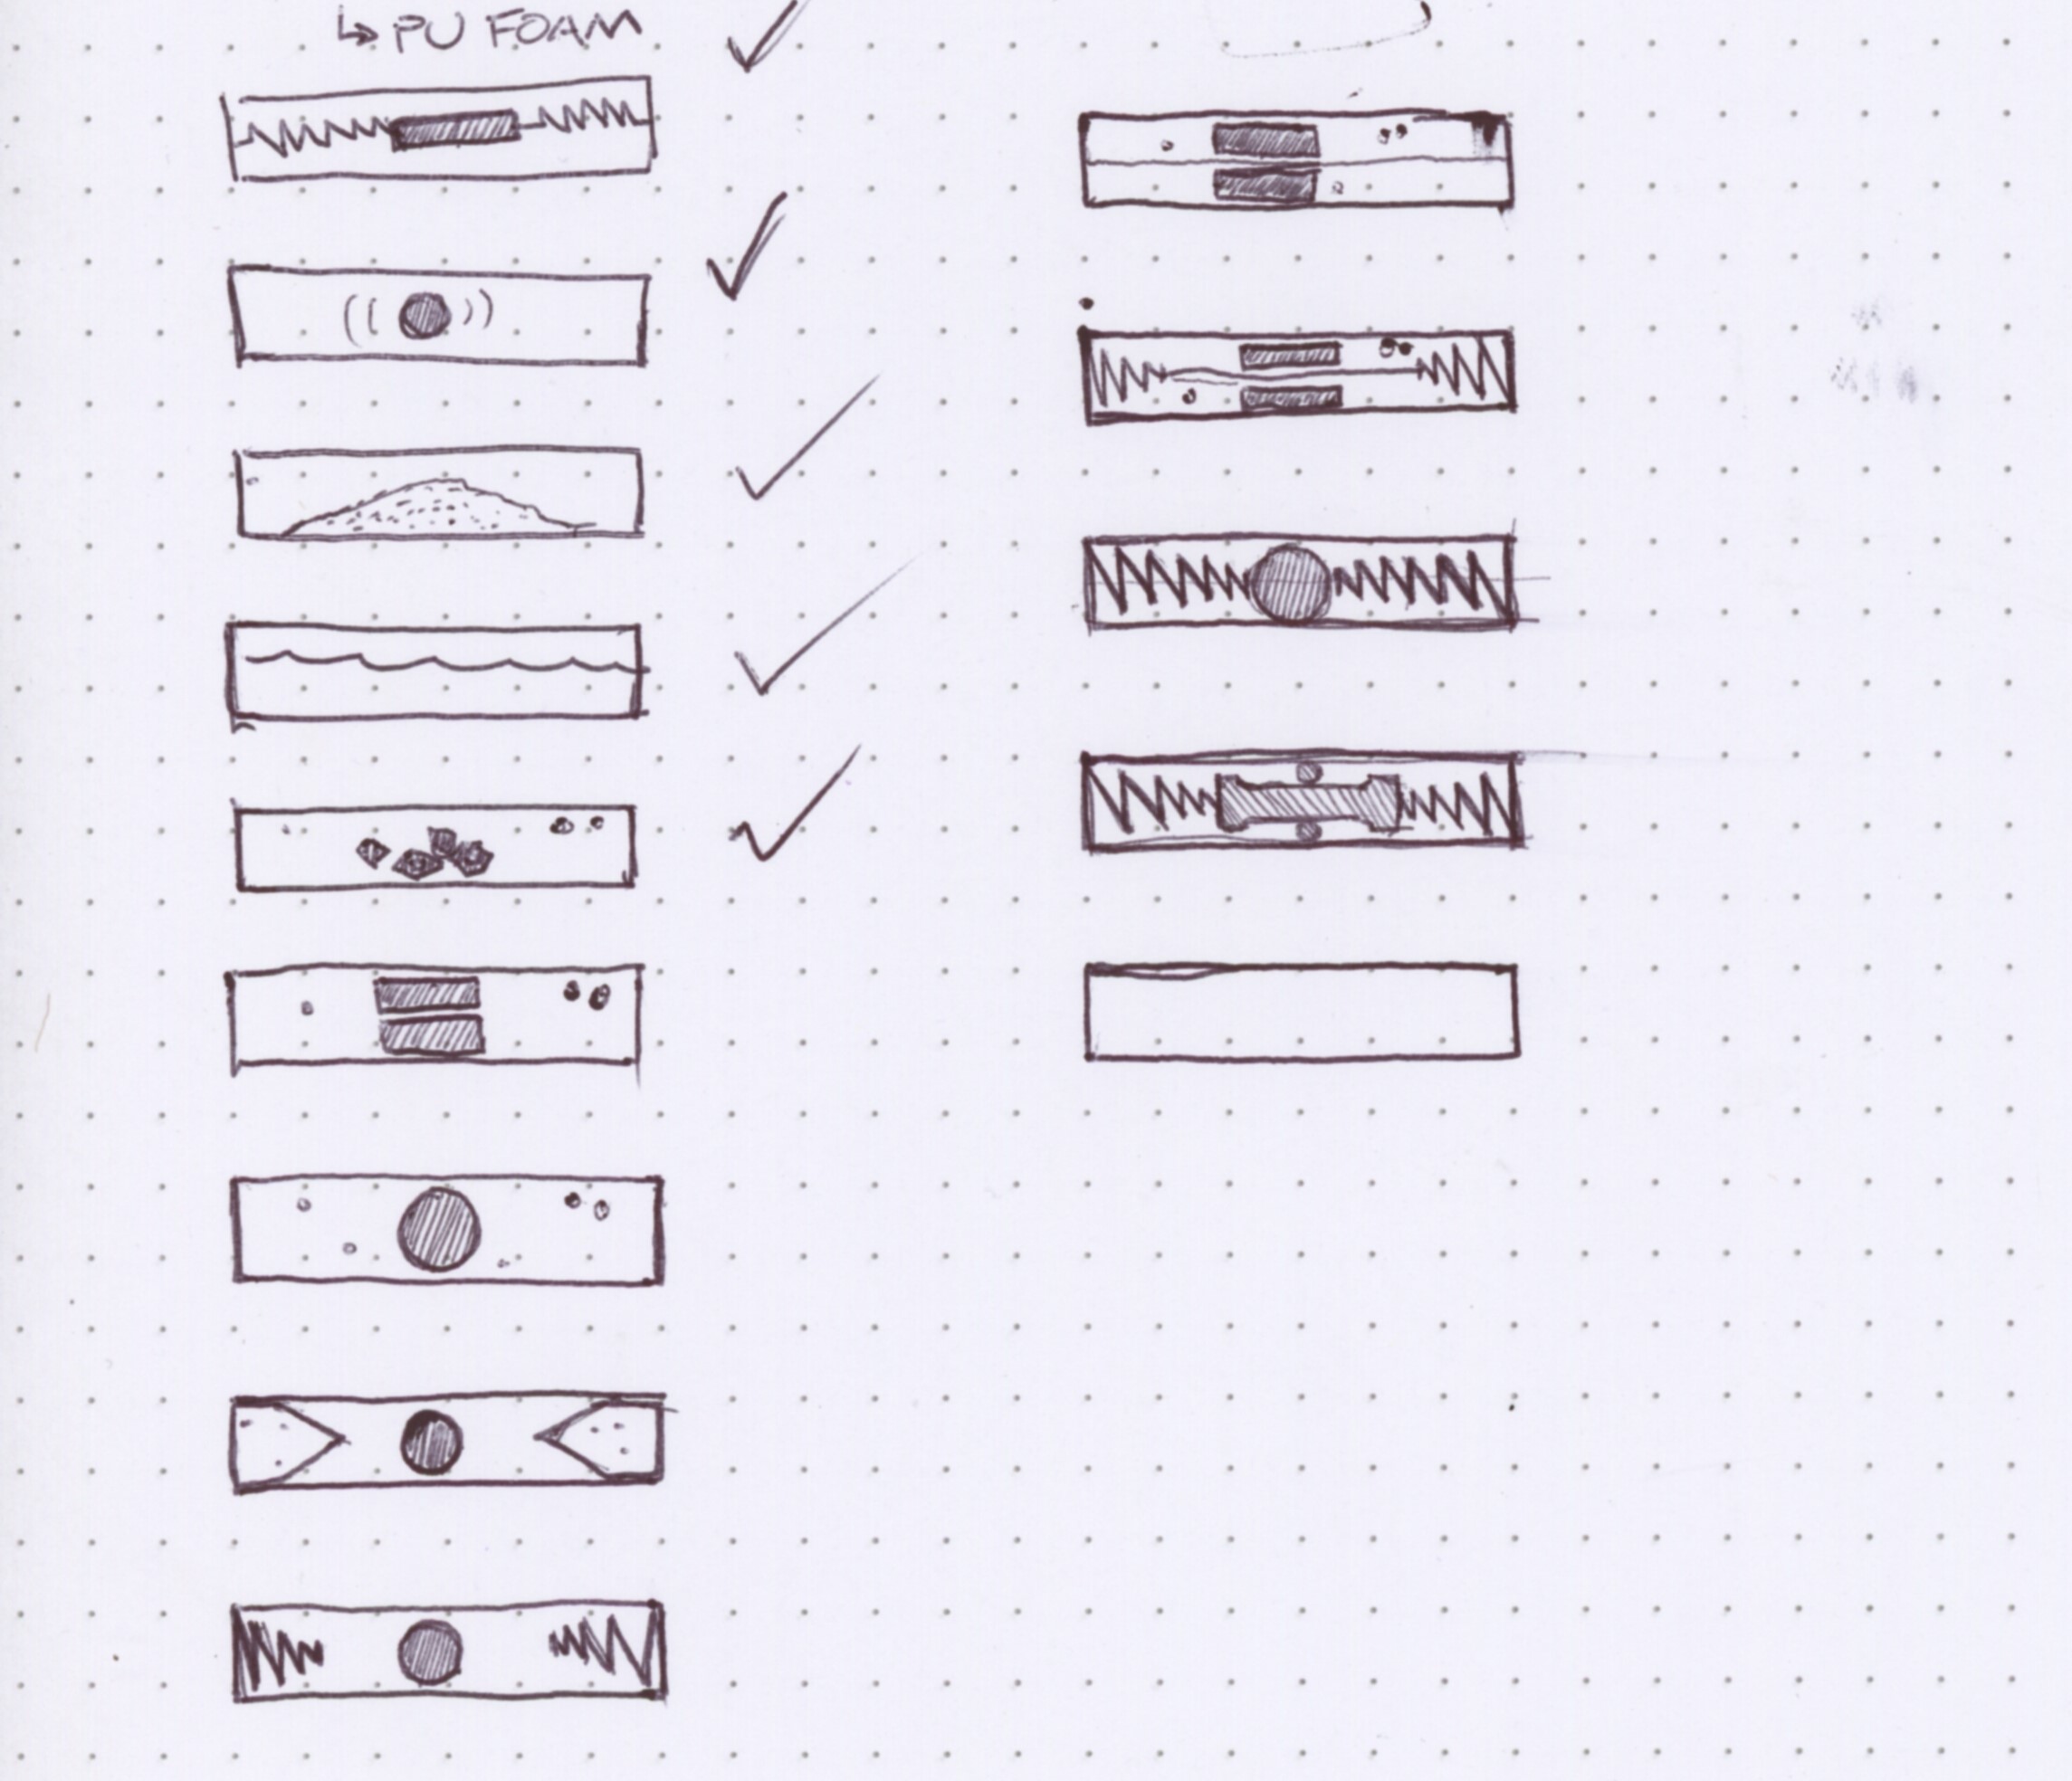 ↳ PU FOAM